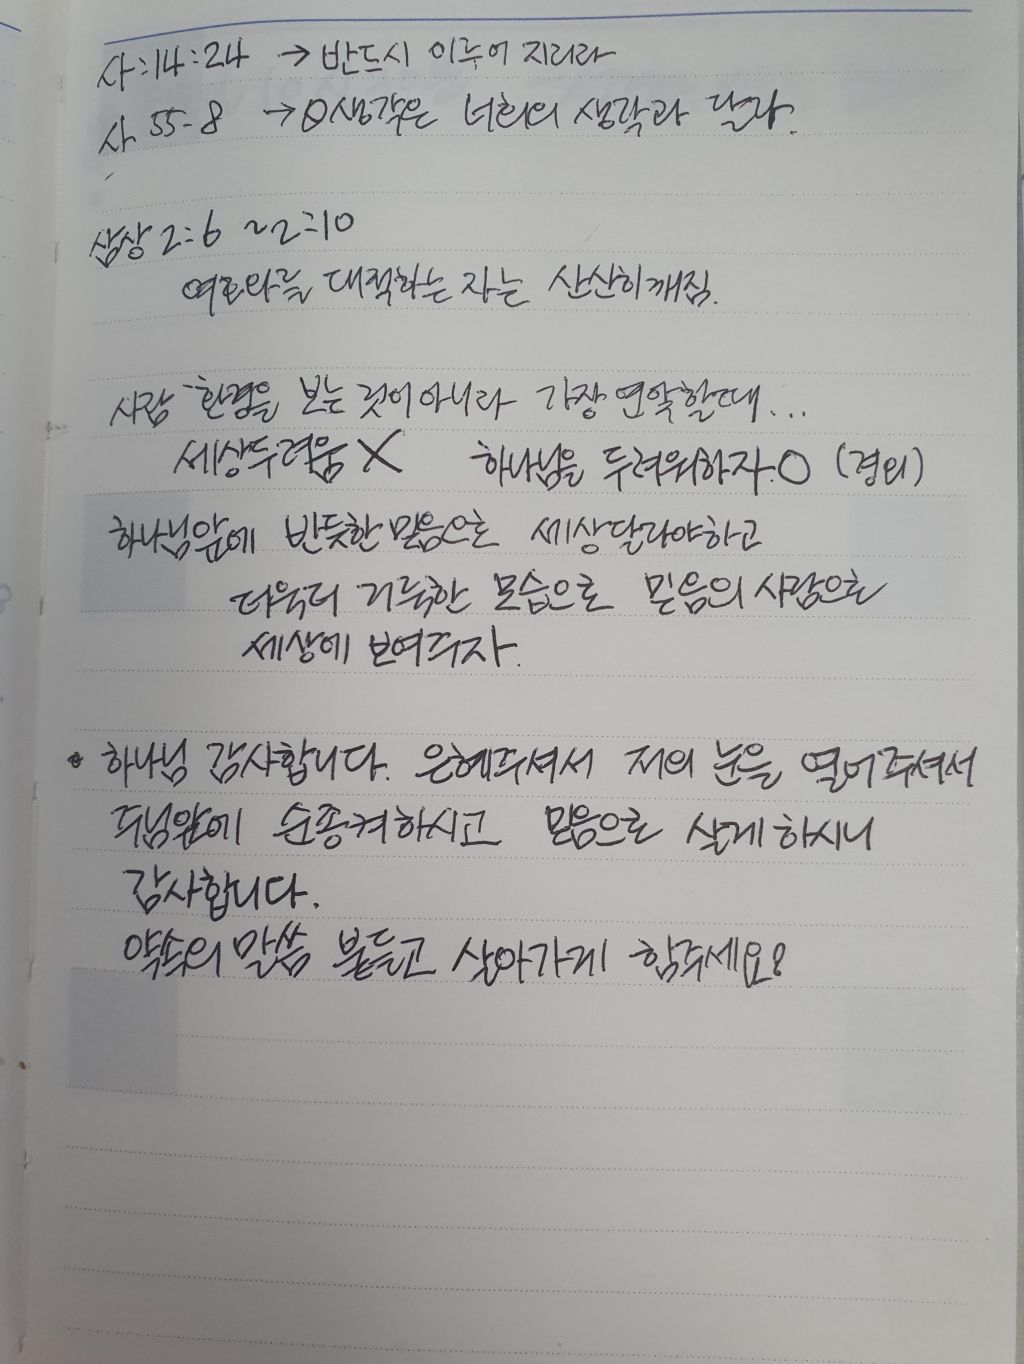 사:14:24 → 반드시 이루어 지리라
사 55-8 → θ생각은 너희의 생각과 달라.
삼상 2:6 ~2:10
여호와를 대적하는 자는 산산히깨짐.
사람 환경을 보는 것이아니라 가장 연약할때...
세상두려움 X 하나님을 두려워하자.O (경외)
하나님앞에 반듯한 믿음으로 세상달라야하고
더욱더 거룩한 모습으로 믿음의 사람으로
세상에 보여주자.
• 하나님 감사합니다. 은혜주셔서 저의 눈을 열어주셔서
주님앞에 순종켜하시고 믿음으로 살게하시니
감사합니다.
약속의 말씀 붙들고 살아가게 함주세요!